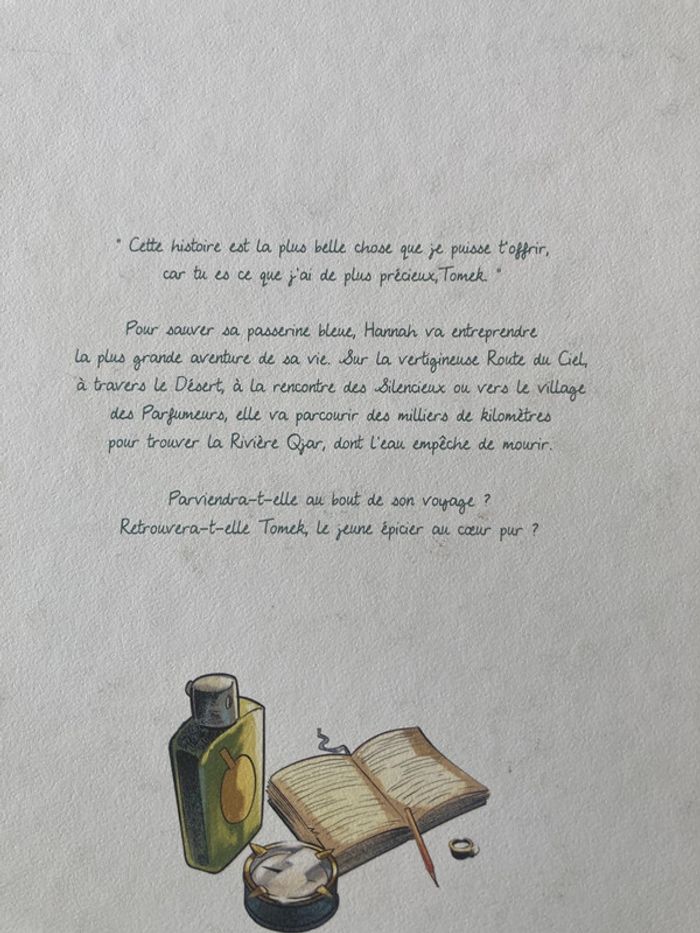 " Cette histoire est la plus belle chose que je puisse t'offrir,
car tu es ce que j'ai de plus précieux, Tomek. "
Pour sauver sa passerine bleue, Hannah va entreprendre
la plus grande aventure de sa vie. Sur la vertigineuse Route du Ciel,
à travers le Désert, à la rencontre des Silencieux ou vers le village
des Parfumeurs, elle va parcourir des milliers de kilomètres
pour trouver la Rivière Qjar, dont l'eau empêche de mourir.
Parviendra-t-elle au bout de son voyage ?
Retrouvera-t-elle Tomek, le jeune épicier au cœur pur ?